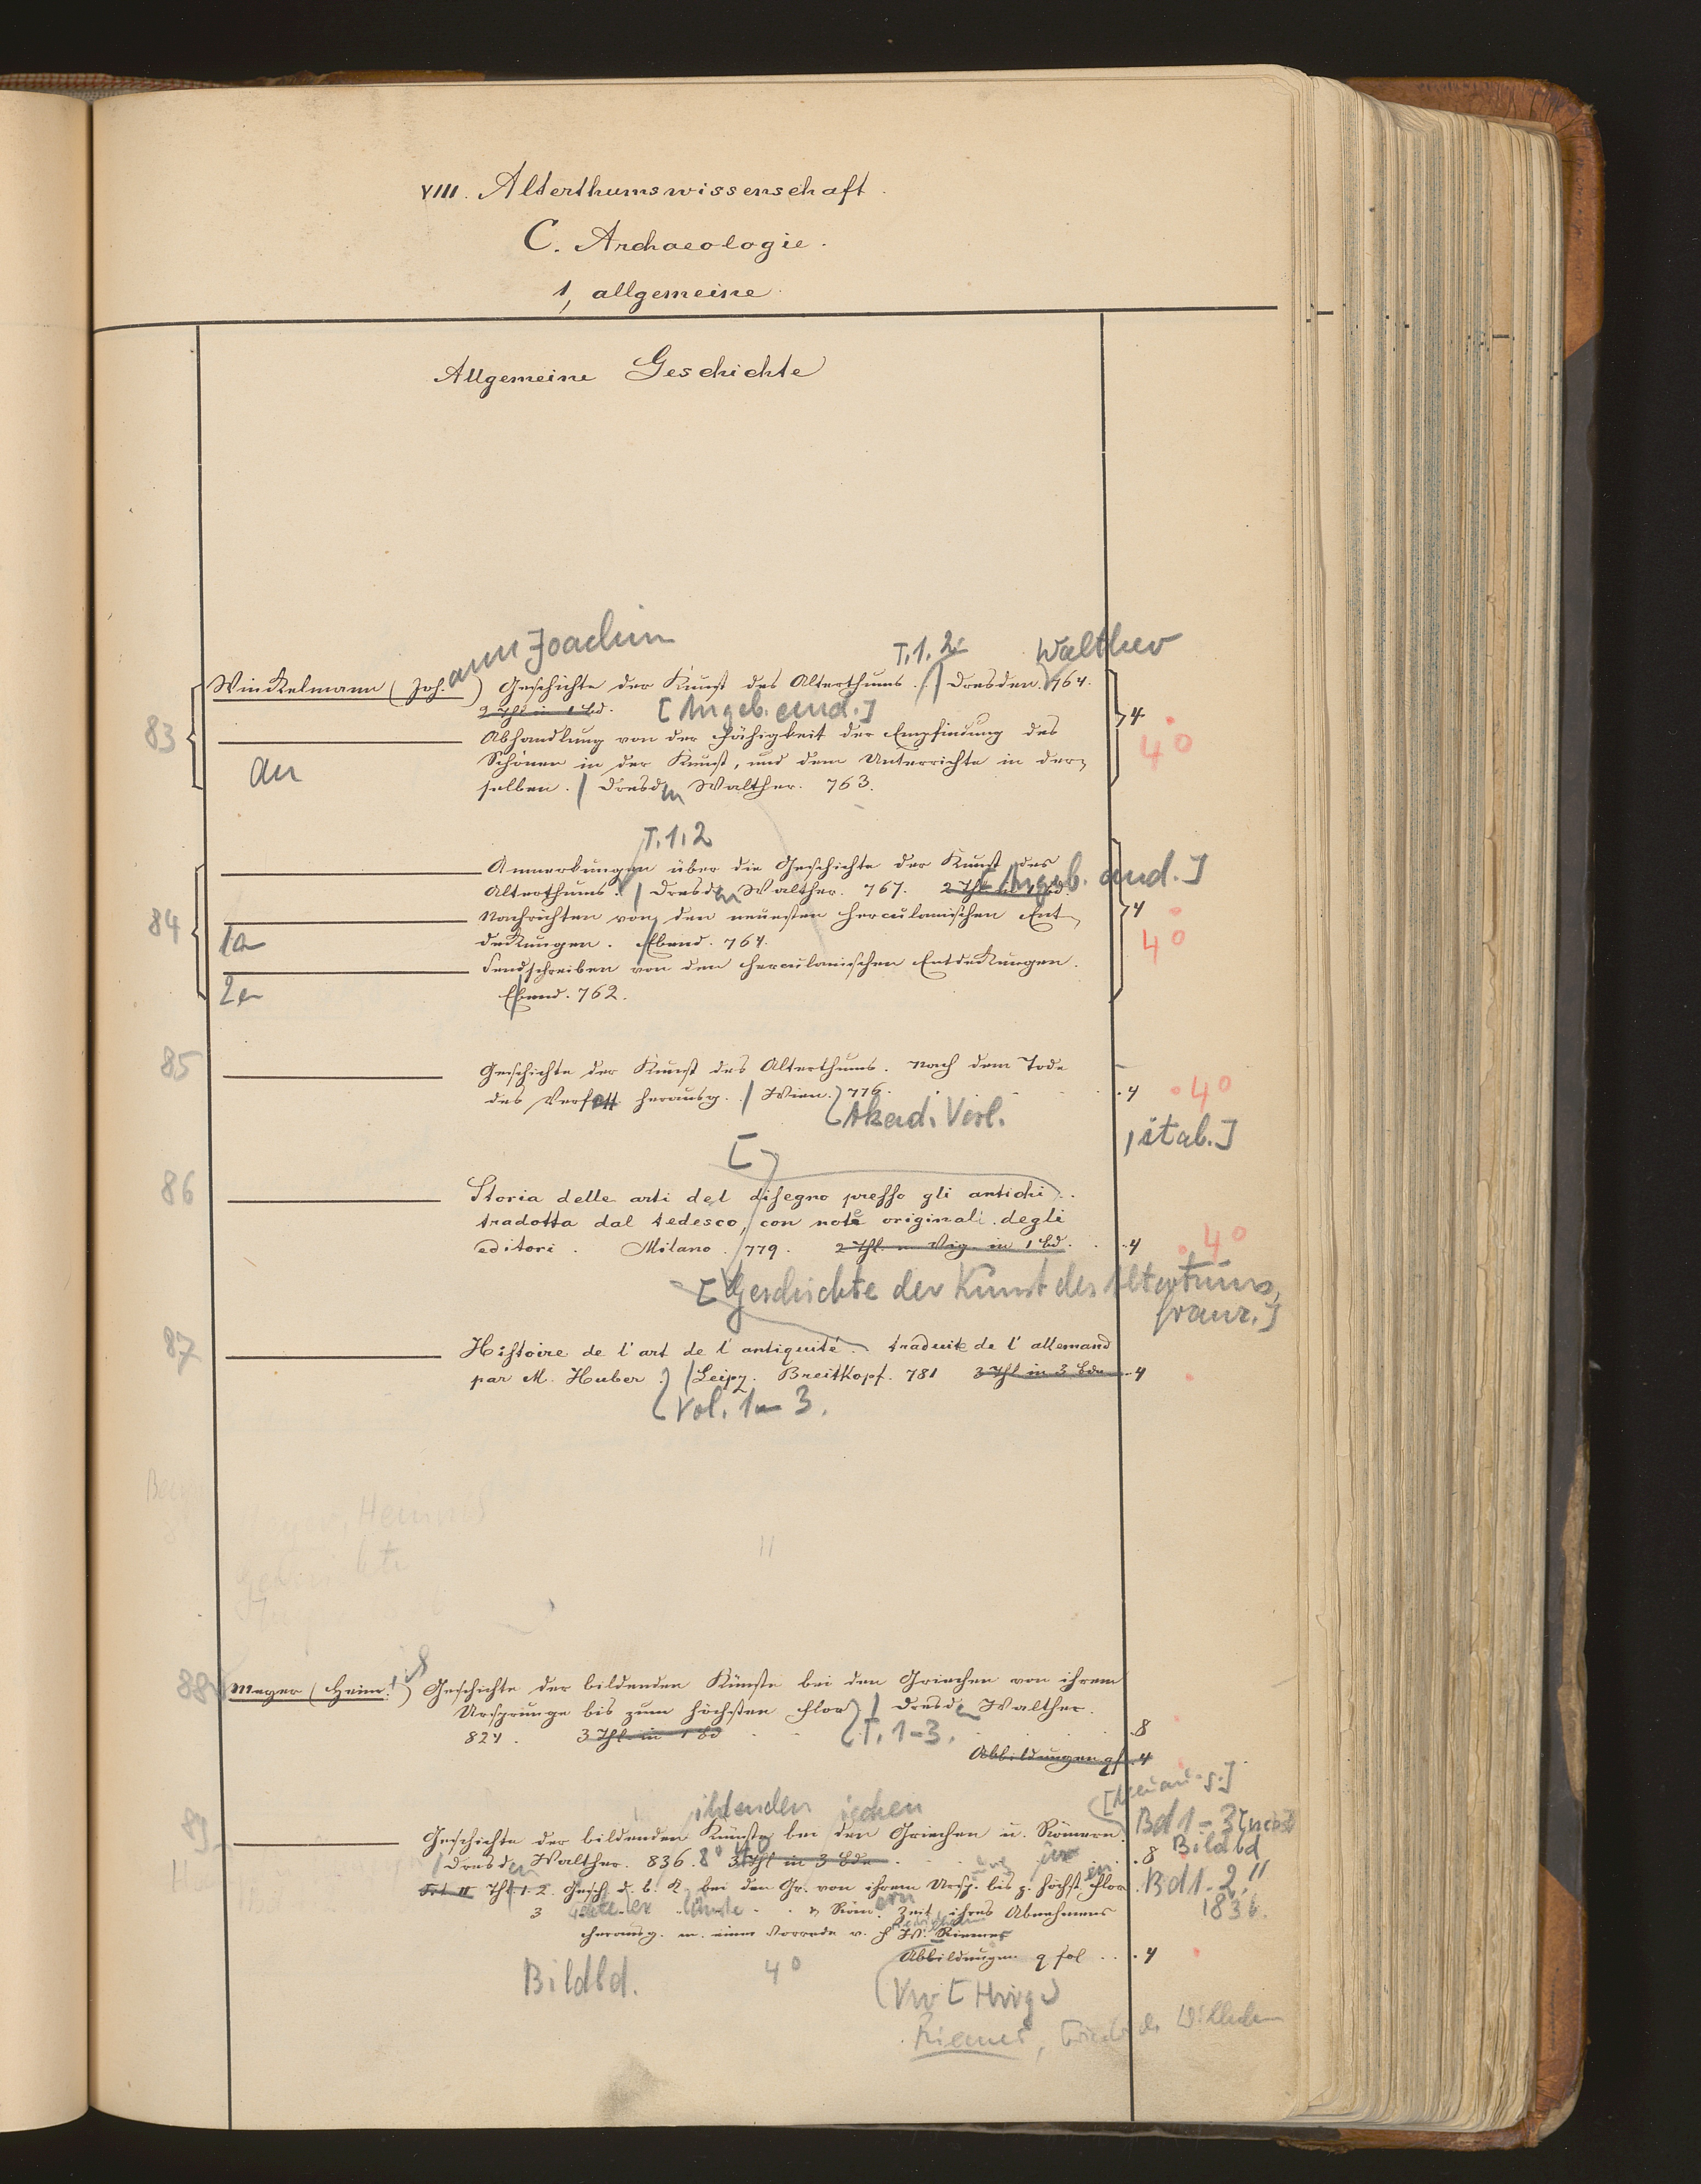 VIII. Alterthumswissenschaft.
C. Archaeologie.
1, allgemeine.
Allgemeine Geschichte
ann Joachim
T. 1. 2
Walther
Winckelmann (Joh.) Geschichte der Kunst des Alterthums. / Dresden. 764.
2 Thl in 1 bd. [Angeb. and.]
83
4
4°
Abhandlung von der Fähigkeit der Empfindung des
an
Schönen in der Kunst, und dem Unterrichte in der-
selben. / Dresden Walther. 763.
T. 1. 2
Anmerkungen über die Geschichte der Kunst des
Alterthums. / Dresden Walther. 767. 2 Thl in 1 bd. [Angeb. and.]
84
4
4°
Nachrichten von den neuesten herculanischen Ent-
1a
deckungen. Ebend. 764.
Sendschreiben von den herculanischen Entdeckungen.
2a
Ebend. 762.
85
Geschichte der Kunst des Alterthums. Nach dem Tode
des Verf. herausg. / Wien. 776. 4 4°
Akad. Verl.
, ital.]
[
86
Storia delle arti del disegno presso gli antichi.
tradotta dal tedesco, con note originali degli
editori. Milano. 779. 2 Thl. m Vig. in 1 bd. 4 4°
[Geschichte der Kunst des Altertums,
franz.]
87
Histoire de l'art de l'antiquité. traduite de l'allemand
par M. Huber. / Leipz. Breitkopf. 781 3 Thl in 3 bdn 4
Vol. 1-3.
88
Meyer (Heinr.) Geschichte der bildenden Künste bei den Griechen von ihrem
Ursprunge bis zum höchsten Flor / Dresden Walther.
824. 3 Thl in 1 bd T. 1-3. 8
Abbildungen qf. 4
ildenden ischen
89
Geschichte der bildenden Künste bei den Griechen u. Römern. Bd 1-3
/ Dresden Walther. 836. 8° 3 Thl in 3 bdn. 8 Bildbd
Thl 1. 2. Gesch. d. b. K. bei den Gr. von ihrem Ursp. bis z. höchst. Flor Bd 1-2,
3 u Röm. Zeit ihres Abnehmens 1836.
herausg. m. einer Vorrede v. F. W. Riemer
Abbildungen q fol. 4
Bildbd. 4°
Riemer, Friedr. Wilhelm